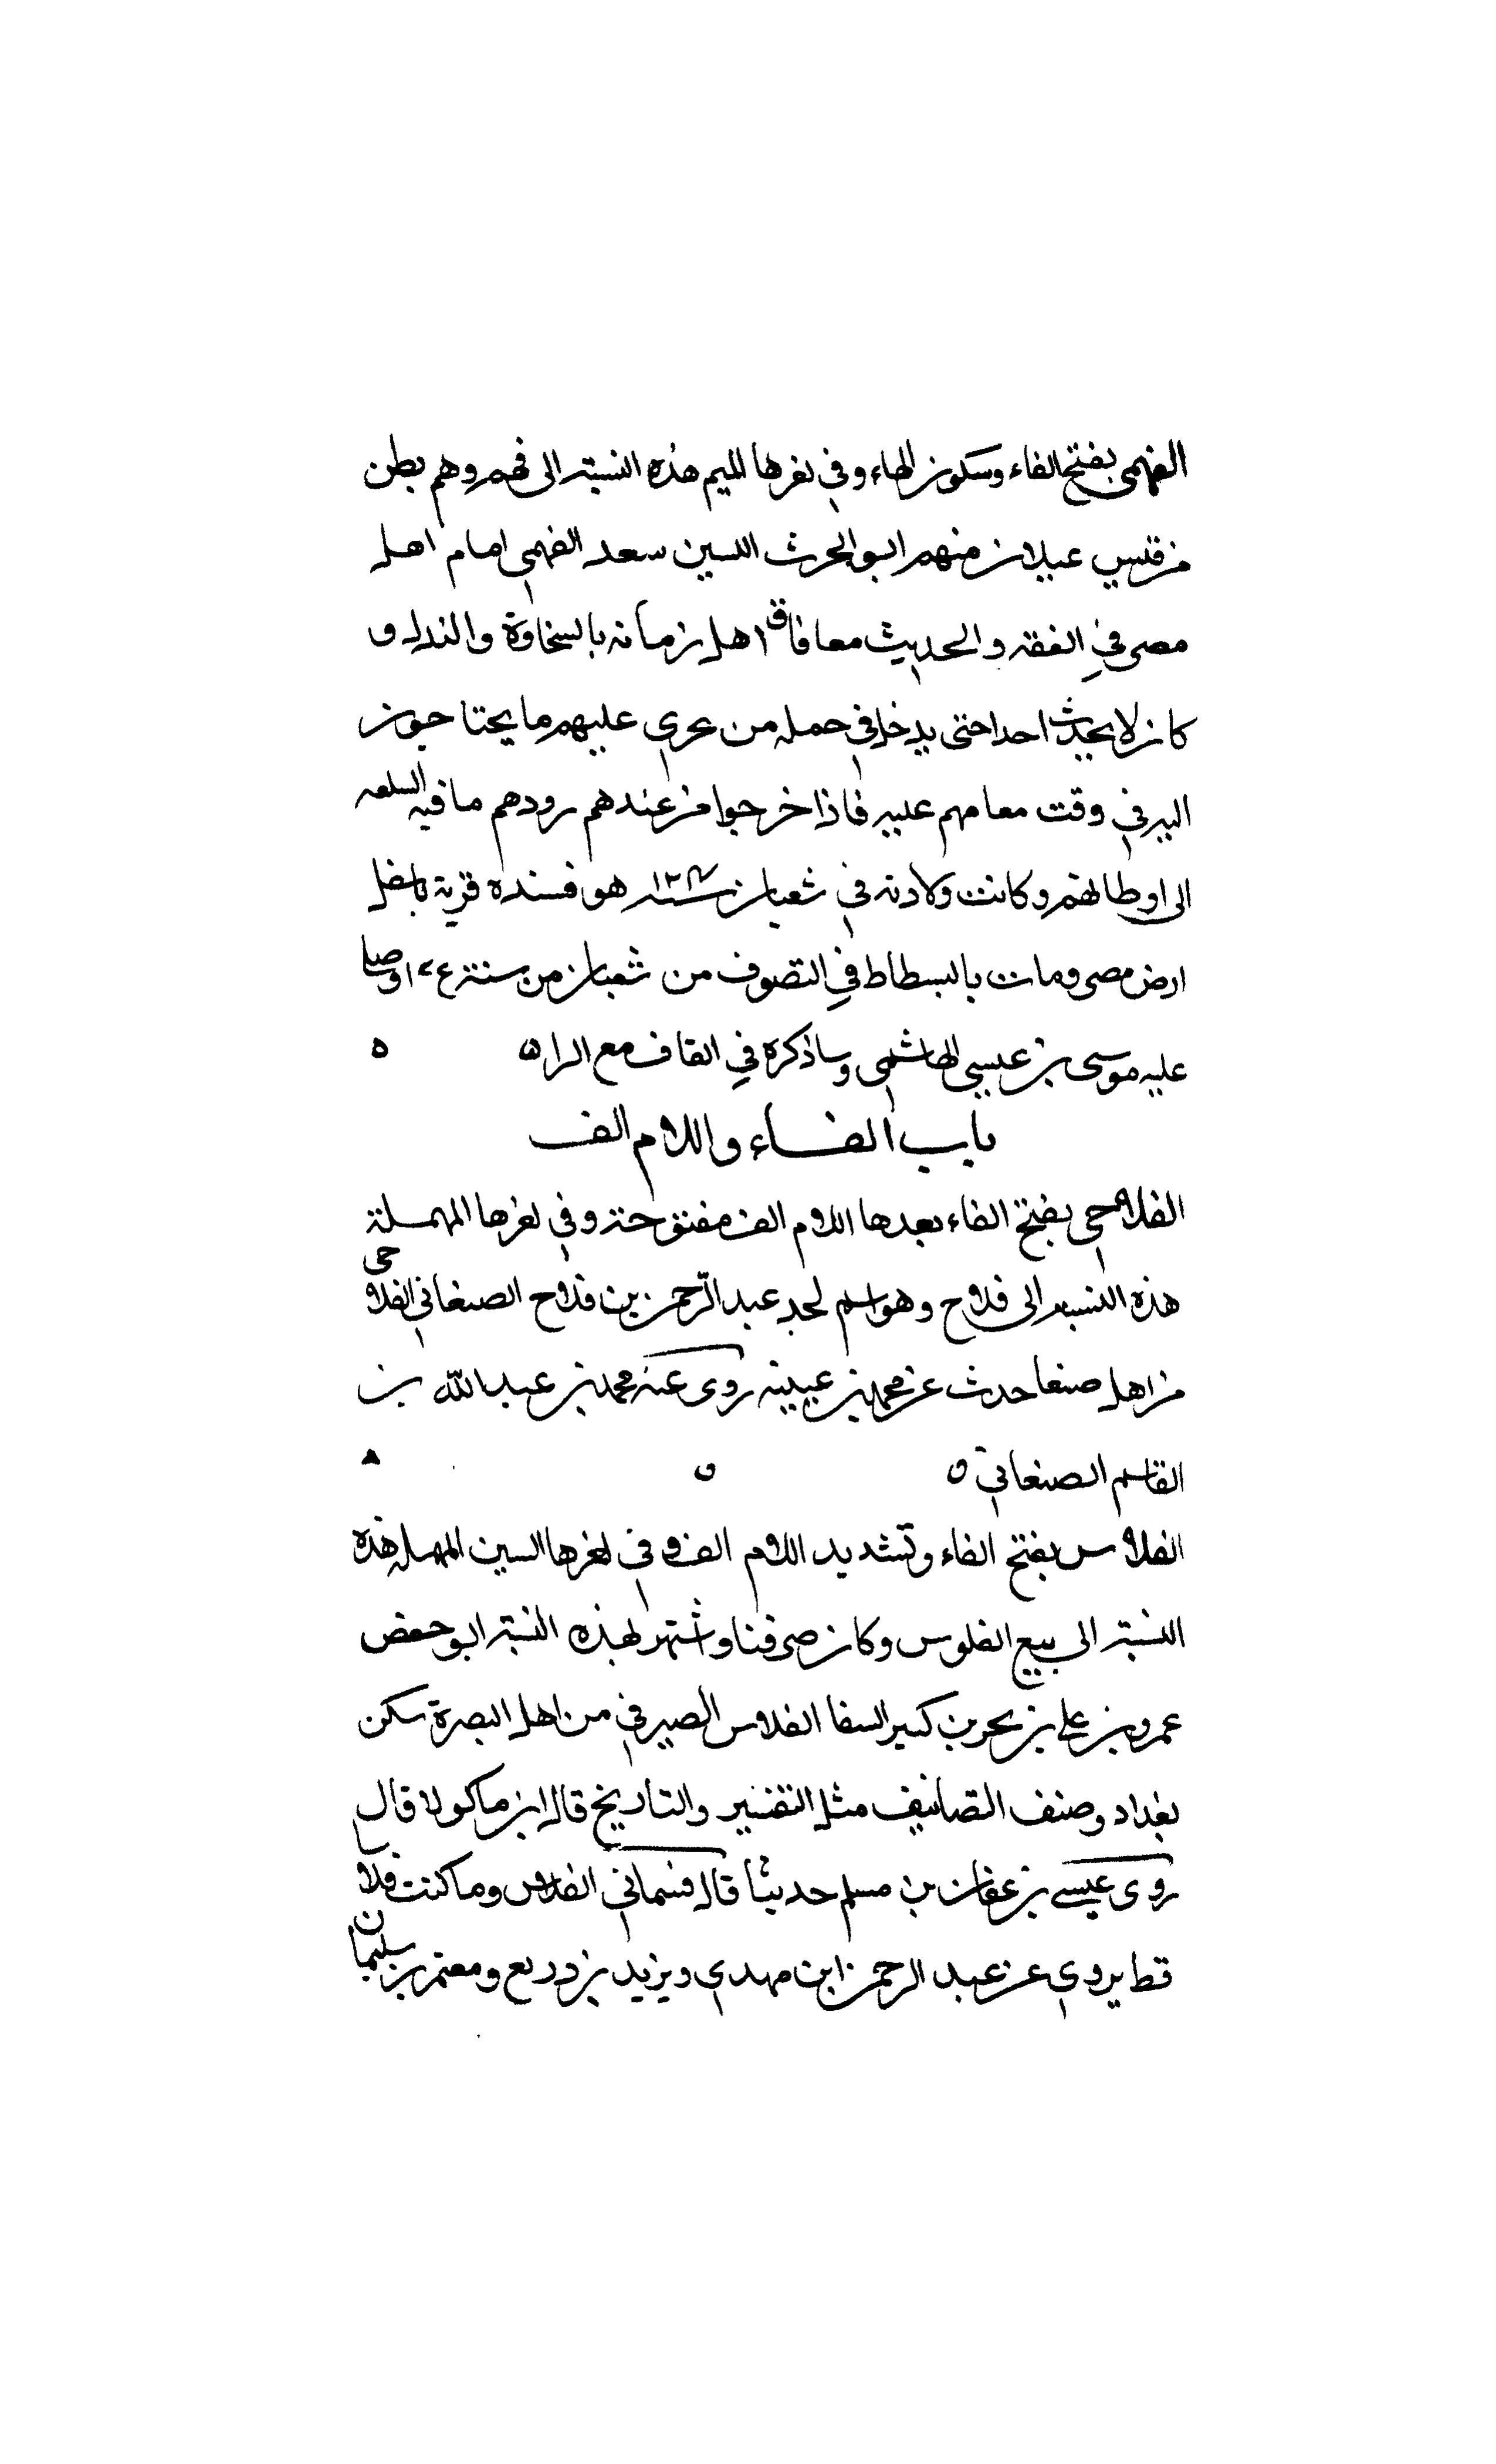 الفهمي بفتح الفاء وسكون الهاء وفي اخرها الميم هذه النسبة الى فهم وهم بطن
من قيس عيلان منهم ابو الحرث الليث بن سعد الفهمي امام اهل
مصر في الفقه والحديث معا فاق اهل زمانه بالسخاوة والبذل و
كان لا يحدث احدا حتى يدخل في جمله من عري عليهم ما يحتاجون
اليه في وقت مقامهم عليه فاذا خرجوا من عندهم زودهم ما فيه السلعه
الى اوطانهم وكانت ولادته في شعبان سنة هو قرية باسفل
ارض مصر ومات بالبسطاط في التصوف من شعبان من سنة وصلى
عليه موسى بن عيسى الهاشمي وساذكره في القاف مع الراء
باب الفاء واللام الف
الفلاحي بفتح الفاء بعدها اللام الف مفتوحة وفي اخرها المهملة
هذه النسبه الى فلاح وهو اسم لجد عبد الرحمن بن فلاح الصنعاني الفلاحي
من اهل صنعا حدث عن محمد بن عيينه روى عنه محمد بن عبد الله بن
القاسم الصنعاني
الفلاس بفتح الفاء وتشديد اللام الف وفي اخرها السين المهمله هذه
النسبة الى بيع الفلوس وكان صرفنا واشتهر لهذه النسبة ابو حفص
عمرو بن علي بن بحر بن كنيز السقا الفلاس الصيرفي من اهل البصرة سكن
بغداد وصنف التصانيف مثل التفسير والتاريخ قال ابن ماكولا قال
روى عيسى بن عفان بن مسلم حديثا قال فسماني الفلاس وما كنت فلاسا
قط يروي عن عبد الرحمن ابن مهدي ويزيد بن زريع ومعتمر بن سليمان